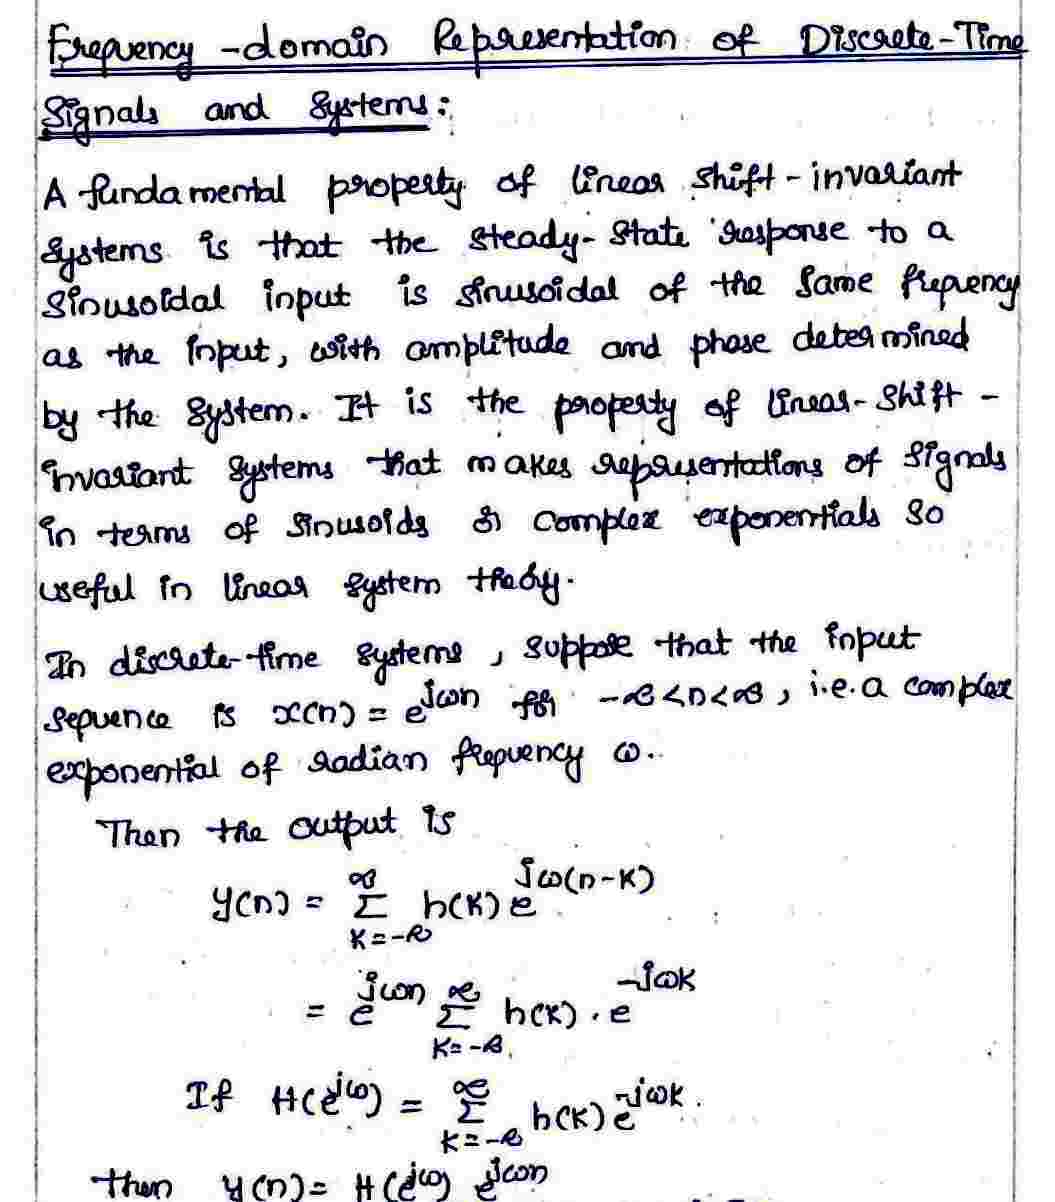 Frequency-domain Representation of Discrete-Time
Signals and Systems:
A fundamental property of linear shift-invariant
systems is that the steady-state response to a
sinusoidal input is sinusoidal of the same frequency
as the input, with amplitude and phase determined
by the system. It is the property of linear-shift-
invariant systems that makes representations of signals
in terms of sinusoids or complex exponentials so
useful in linear system theory.
In discrete-time systems, suppose that the input
sequence is x(n) = e^{jωn} for -∞<n<∞, i.e. a complex
exponential of radian frequency ω.
Then the output is
y(n) = Σ_{k=-∞}^{∞} h(k) e^{jω(n-k)}
= e^{jωn} Σ_{k=-∞}^{∞} h(k) . e^{-jωk}
If H(e^{jω}) = Σ_{k=-∞}^{∞} h(k) e^{-jωk}.
then y(n) = H(e^{jω}) e^{jωn}